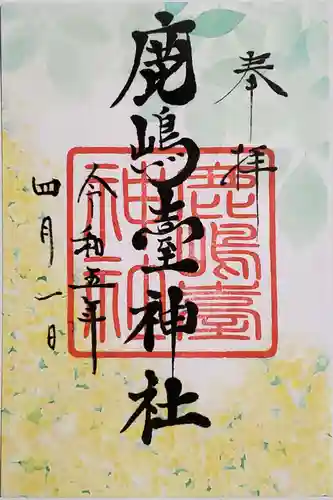 奉拝
鹿嶋臺神社
令和五年
四月一日
鹿嶋臺
神社